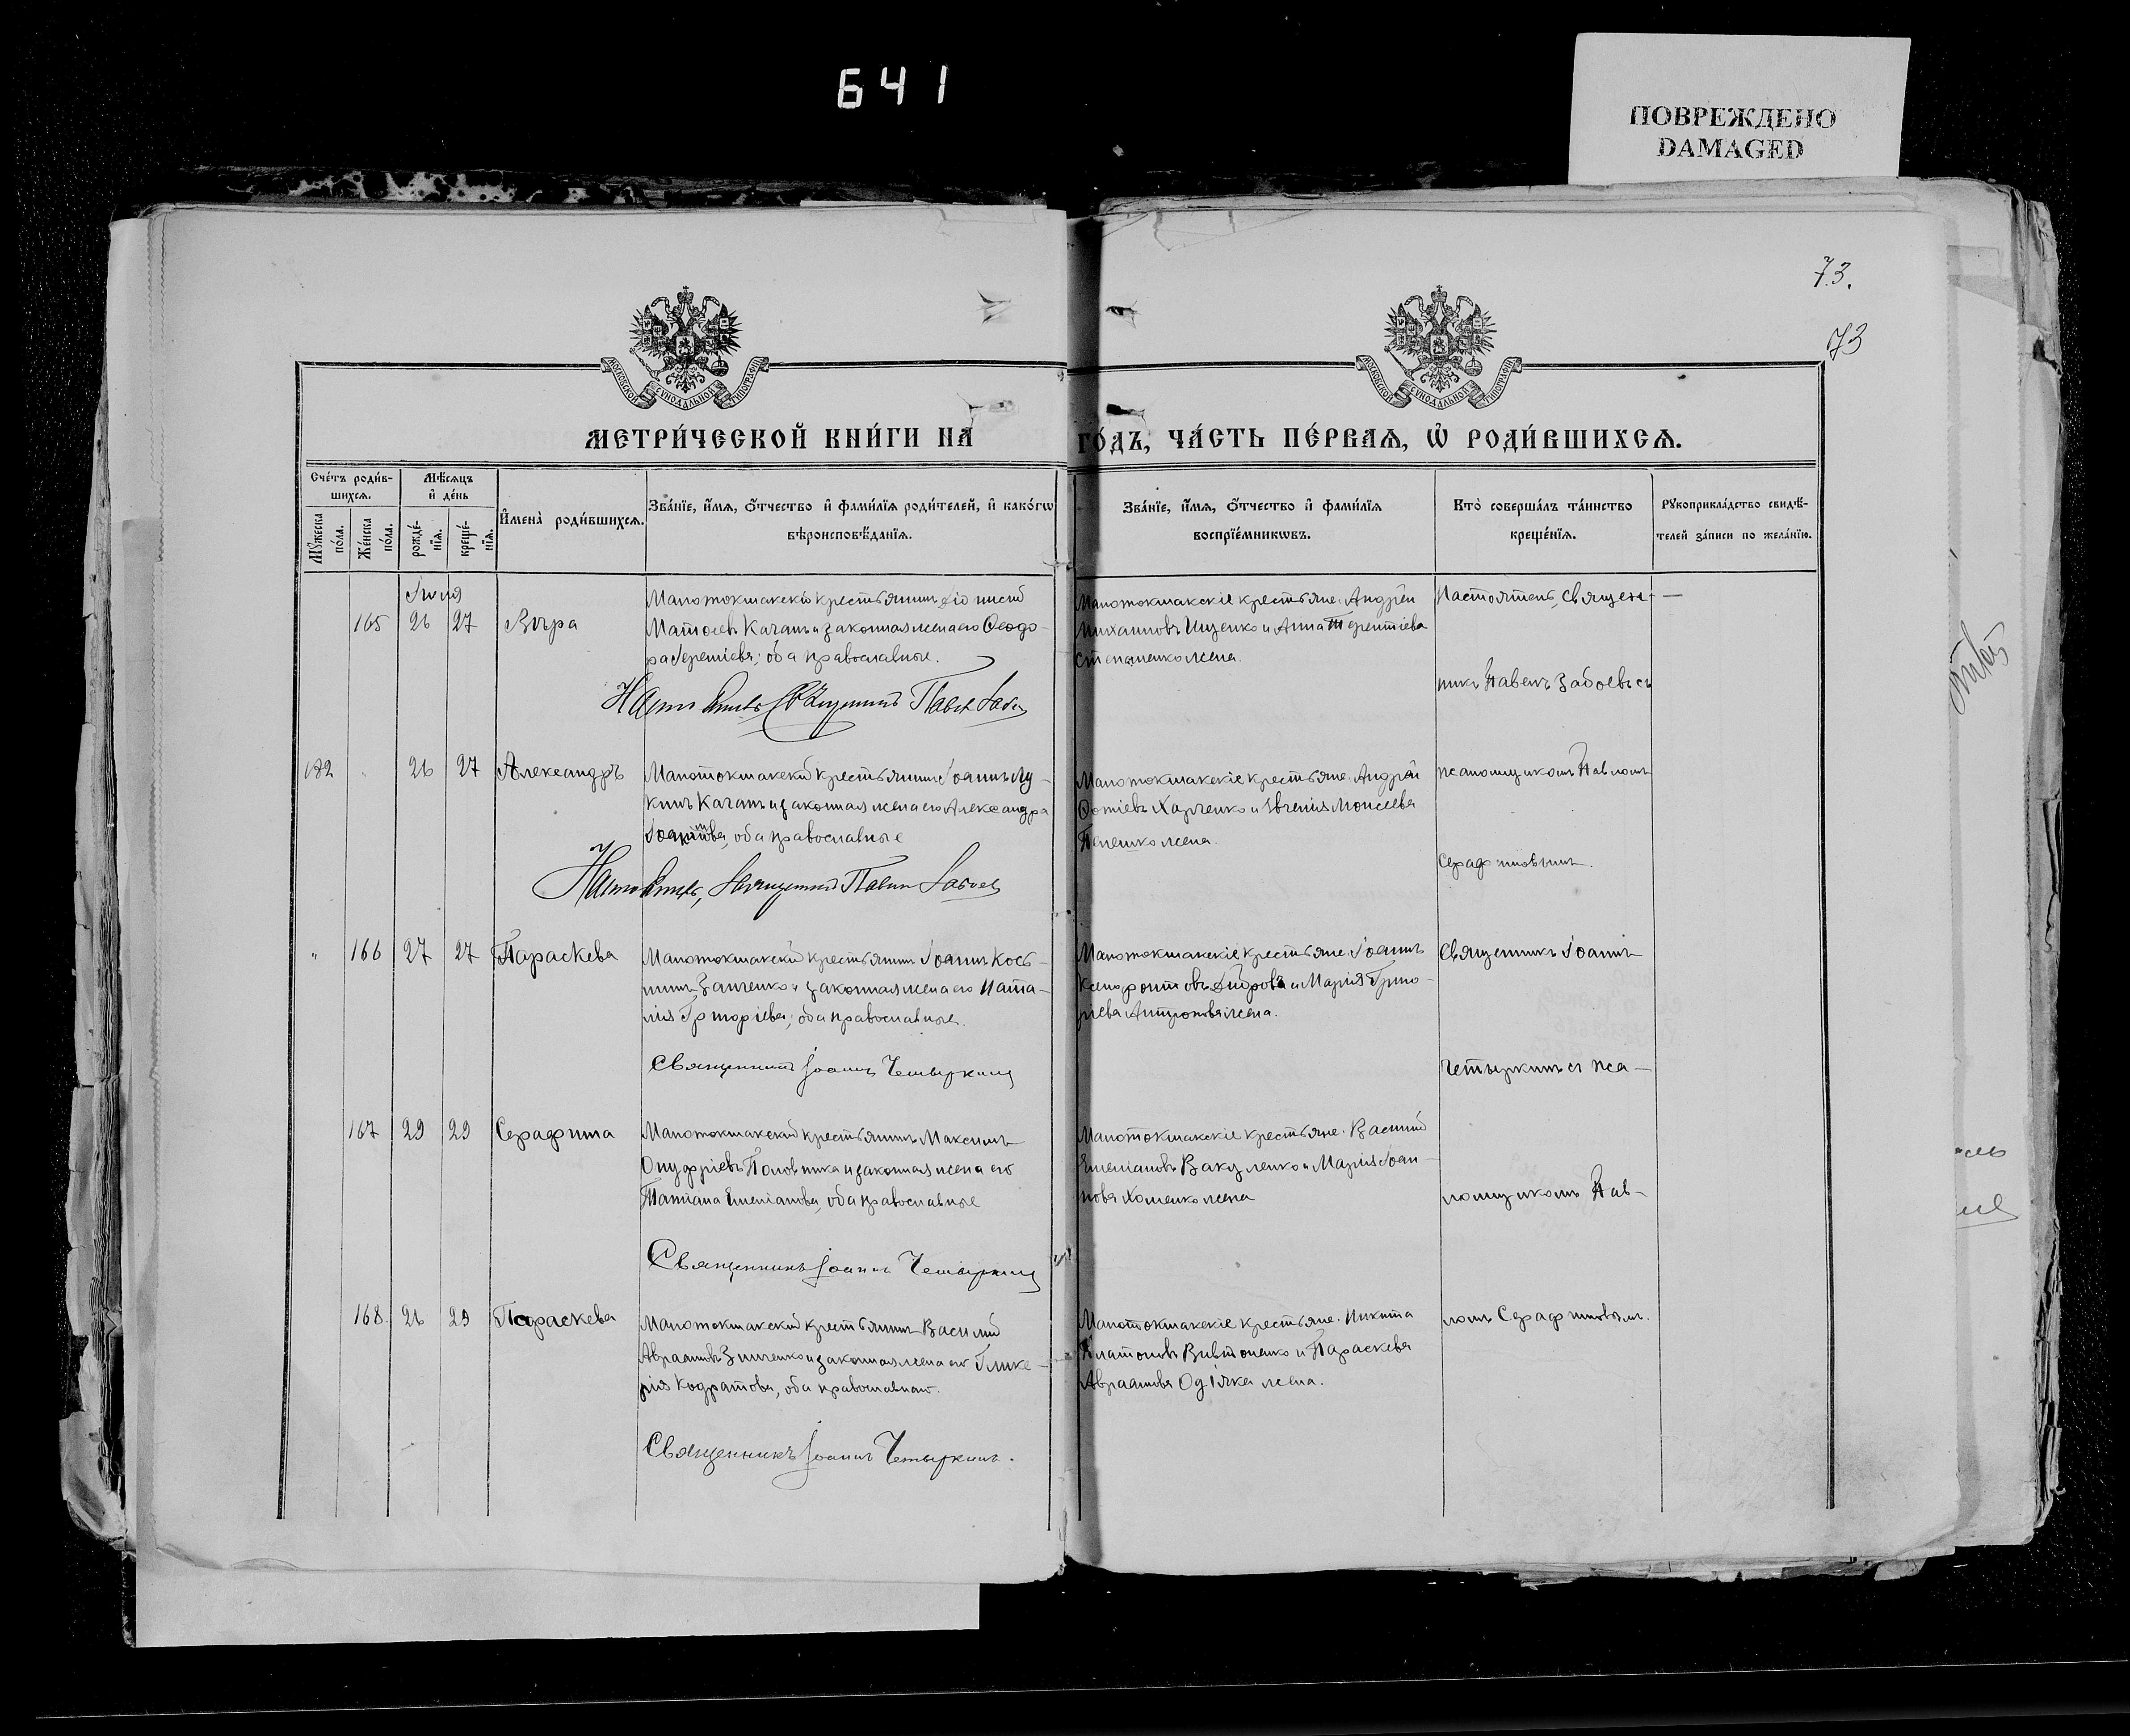 641
ПОВРЕЖДЕНО
DAMAGED
73.
73
МОСКОВСКОЙ СѴНОДАЛЬНОЙ ТИПОГРАФІИ
МОСКОВСКОЙ СѴНОДАЛЬНОЙ ТИПОГРАФІИ
МЕТРИ́ЧЕСКОЙ КНИ́ГИ НА
ГО́ДЪ, ЧА́СТЬ ПЕ́РВАѦ, Ѡ҆ РОДИ́ВШИХСѦ.
Сче́тъ роди́в-
шихсѧ.
Мѣ́сѧцъ
и҆ де́нь
Мꙋ́жеска по́ла.
Же́нска по́ла.
рожде́-
нїѧ.
креще́-
нїѧ.
И҆мена̀ роди́вшихсѧ.
Зва́нїе, и҆́мѧ, ѻ҆́тчество и҆ фами́лїѧ роди́телей, и҆ како́гѡ
вѣроисповѣ́данїѧ.
Зва́нїе, и҆́мѧ, ѻ҆́тчество и҆ фами́лїѧ
воспрїе́мникѡвъ.
Кто̀ соверша́лъ та́инство
креще́нїѧ.
Рꙋкоприкла́дство свидѣ́-
телей за́писи по жела́нїю.
Іюля
165 26 27 Вѣра
Малотокмакскій крестьянинъ
Матвѣевъ Качанъ и законная жена его Ѳеодо-
ра Терентіева; оба православные.
Настоятель Священникъ Павелъ Забоевъ
Малотокмакскіе крестьяне: Андрей
Михаиловъ Ищенко и Анна Терентіева
Степаненко жена.
Настоятель, священ-
никъ Павелъ Забоевъ съ
182 " 26 27 Александръ
Малотокмакскій крестьянинъ Іоаннъ Лу-
кинъ Качанъ и законная жена его Александра
Іоаннова, оба православные
Настоятель, Священникъ Павелъ Забоевъ
Малотокмакскіе крестьяне: Андрей
Фотіевъ Харченко и Евгенія Моисеева
жена.
псаломщикомъ Павломъ
Серафимовымъ.
" 166 27 27 Параскева
Малотокмакскій крестьянинъ Іоаннъ Кось-
минъ и законная жена его Ната-
лія Григоріева; оба православные.
Священникъ Іоаннъ Четыркинъ
Малотокмакскіе крестьяне: Іоаннъ
Ксенофонтовъ и Марія Григо-
ріева жена.
Священникъ Іоаннъ
Четыркинъ съ пса-
167 29 29 Серафима
Малотокмакскій крестьянинъ Максимъ
Онуфріевъ и законная жена его
Татіана Емеліанова, оба православные
Священникъ Іоаннъ Четыркинъ
Малотокмакскіе крестьяне: Василій
Емеліановъ Вакуленко и Марія Іоан-
нова Хоменко жена
ломщикомъ Пав-
168 26 29 Параскева
Малотокмакскій крестьянинъ Василій
Авраамовъ Зинченко и законная жена его Глике-
рія Кодратова, оба православные.
Священникъ Іоаннъ Четыркинъ.
Малотокмакскіе крестьяне: Никита
Платоновъ и Параскева
Авраамова жена.
ломъ Серафимовымъ.